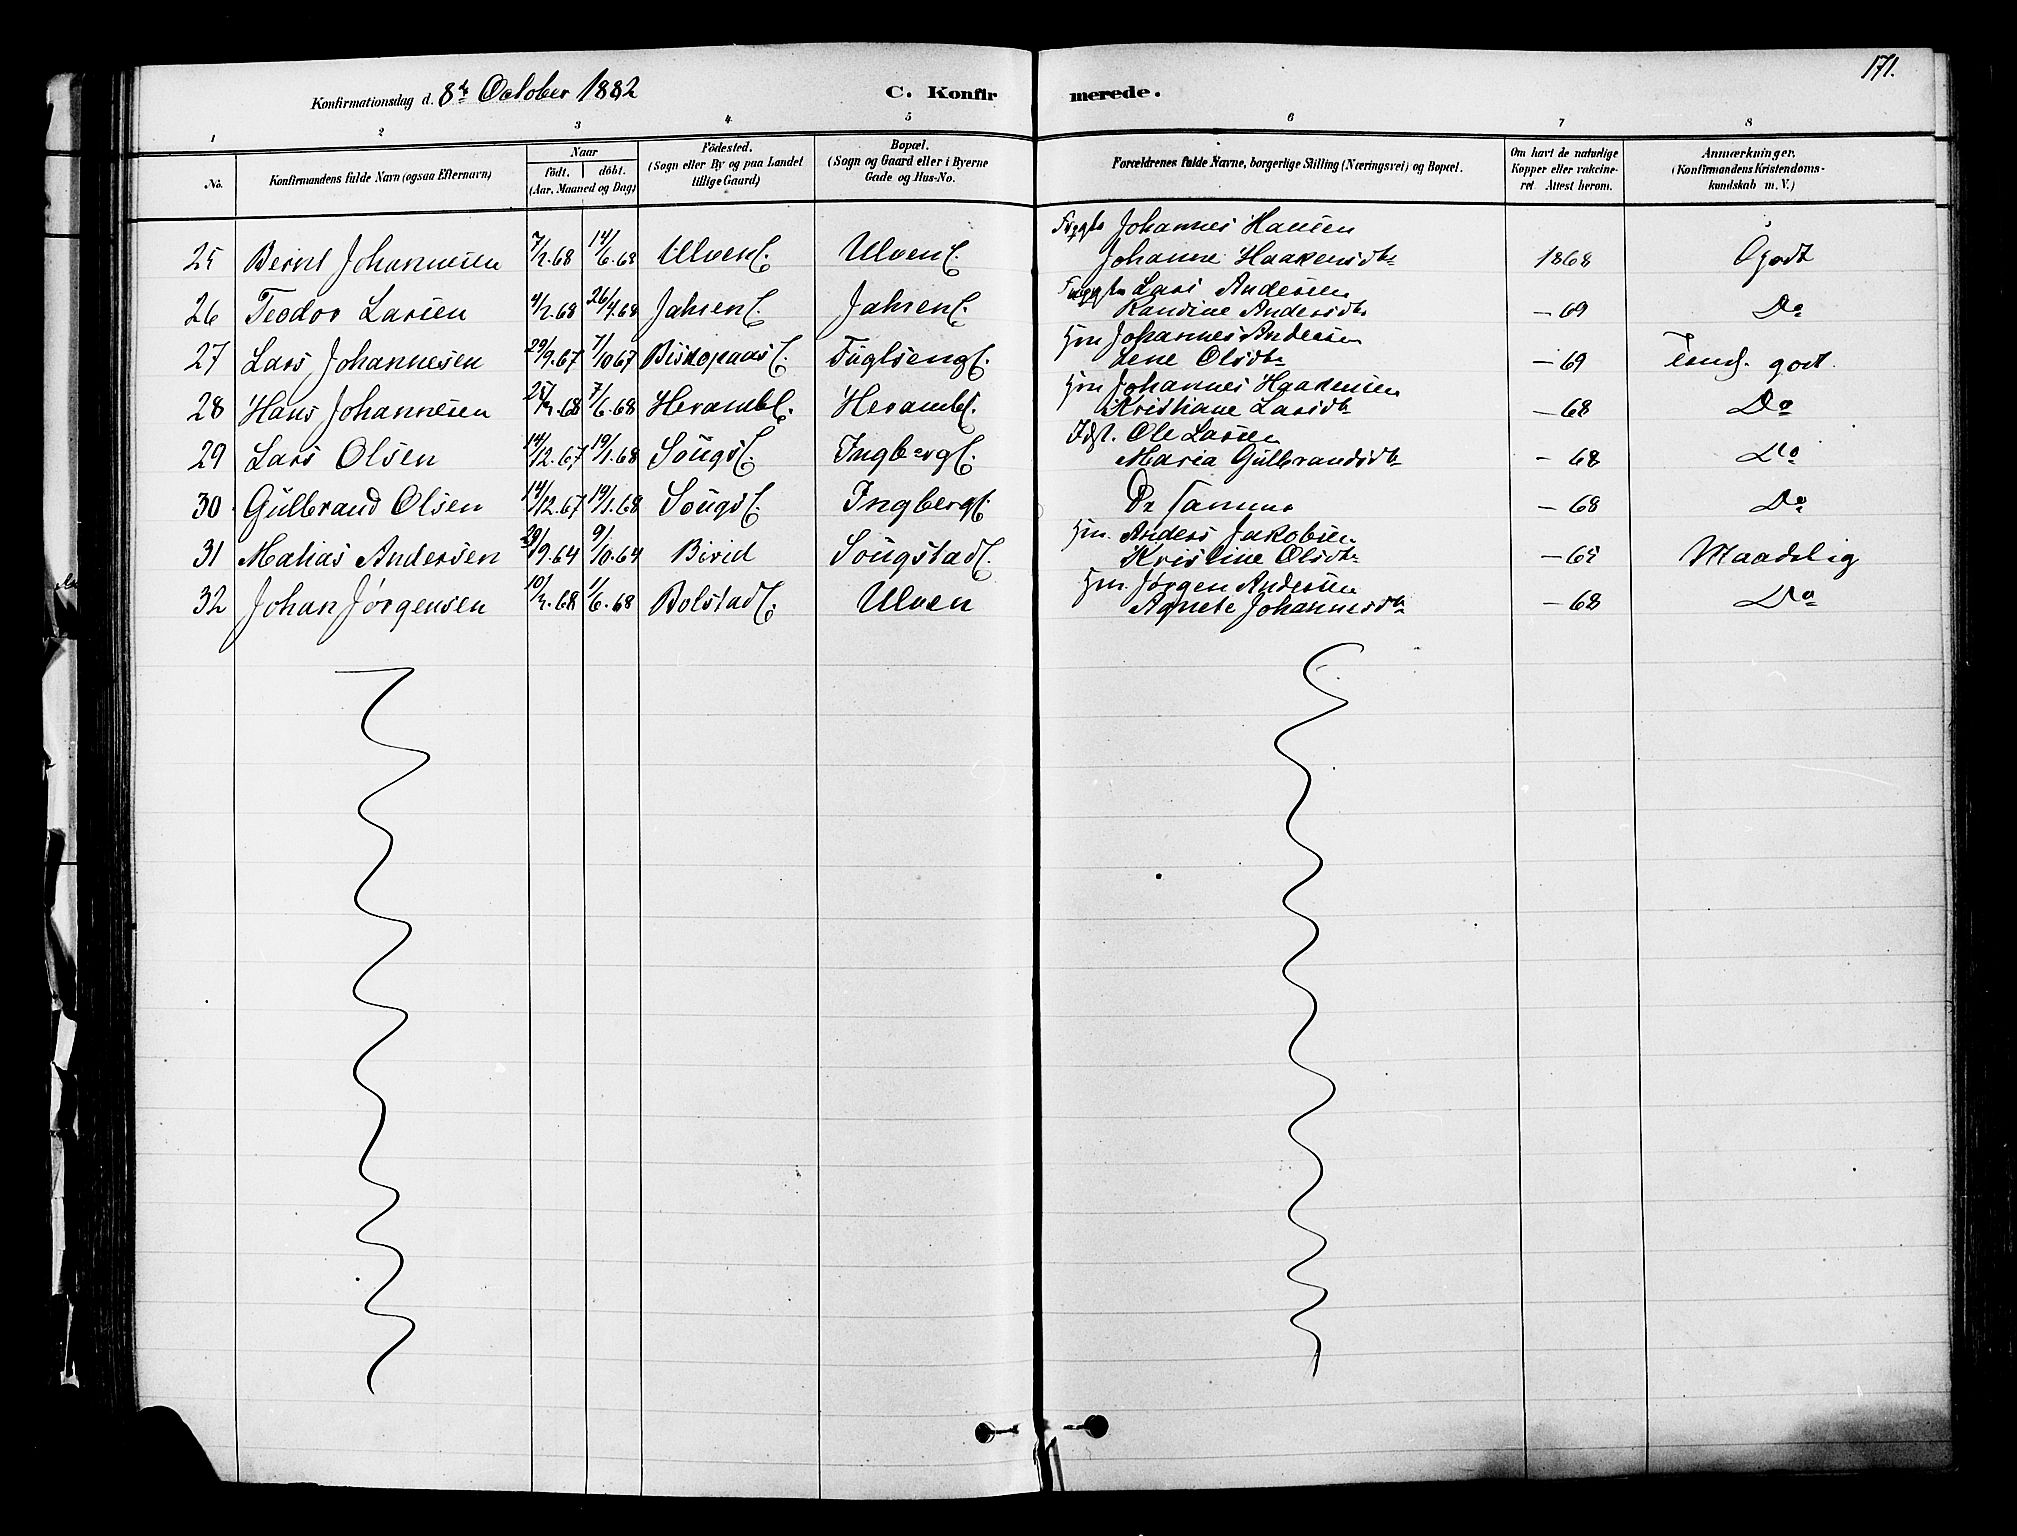 171.
Konfirmationsdag d. 8de October 1882 C. Konfirmerede.
1 2 3 4 5 6 7 8
No. Konfirmandens fulde Navn (ogsaa Efternavn) Naar født. døbt. (Aar, Maaned og Dag) Fødested. (Sogn eller By og paa Landet tillige Gaard) Bopæl. (Sogn og Gaard eller i Byerne Gade og Hus-No. Forældrenes fulde Navne, borgerlige Stilling (Næringsvei) og Bopæl. Om havt de naturlige Kopper eller vakcineret. Attest herom. Anmærkninger. (Konfirmandens Kristendomskundskab m. V.)
Johannes Hansen
25 Bernt Johannesen 7/2.68 14/6.68 Ulven Ulven Johanne Haakensdtr 1868 Godt
Lars Andersen
26 Teodor Larsen 4/2.68 26/4.68 Jahren Jahren Randine Andersdtr — 69 Do
Hm Johannes Andersen
27 Lars Johannesen 29/9.67 7/10 67 Fuglseng Lene Olsdtr — 69 Temd. godt.
Hm Johannes Haakensen
28 Hans Johannesen 7/6.68 Heramb Heramb Kristiane Larsdtr — 68 Do
Idst. Ole Larsen
29 Lars Olsen 14/12.67 19/1.68 Sougs Ingberg Maria Gulbrandsdtr — 68 Do
30 Gulbrand Olsen 14/12.67 19/1.68 Sougs Ingberg De Samme — 68 Do
Hm. Anders Jakobsen
31 Matias Andersen 29/9.64 9/10.64 Birid Sougstad Kristine Olsdtr — 65 Maadelig
Hm. Jørgen Andersen
32 Johan Jørgensen 10/3.68 1/6.68 Bolstad Ulven Agnete Johannesdtr — 68 Do